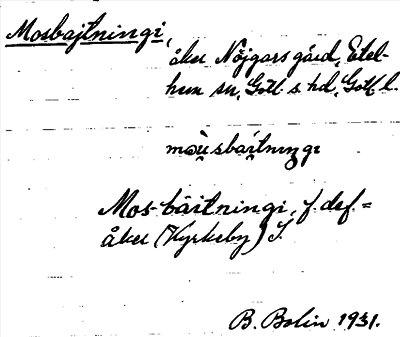 Mosbajtningi,
åker Nöjgarsgård, Etel-
hem sn, Gotl. s. hd, Gotl. l.
Mos-bäitningi, f. def. =
åker (Kyrkeby) J.
B. Bolin 1931.